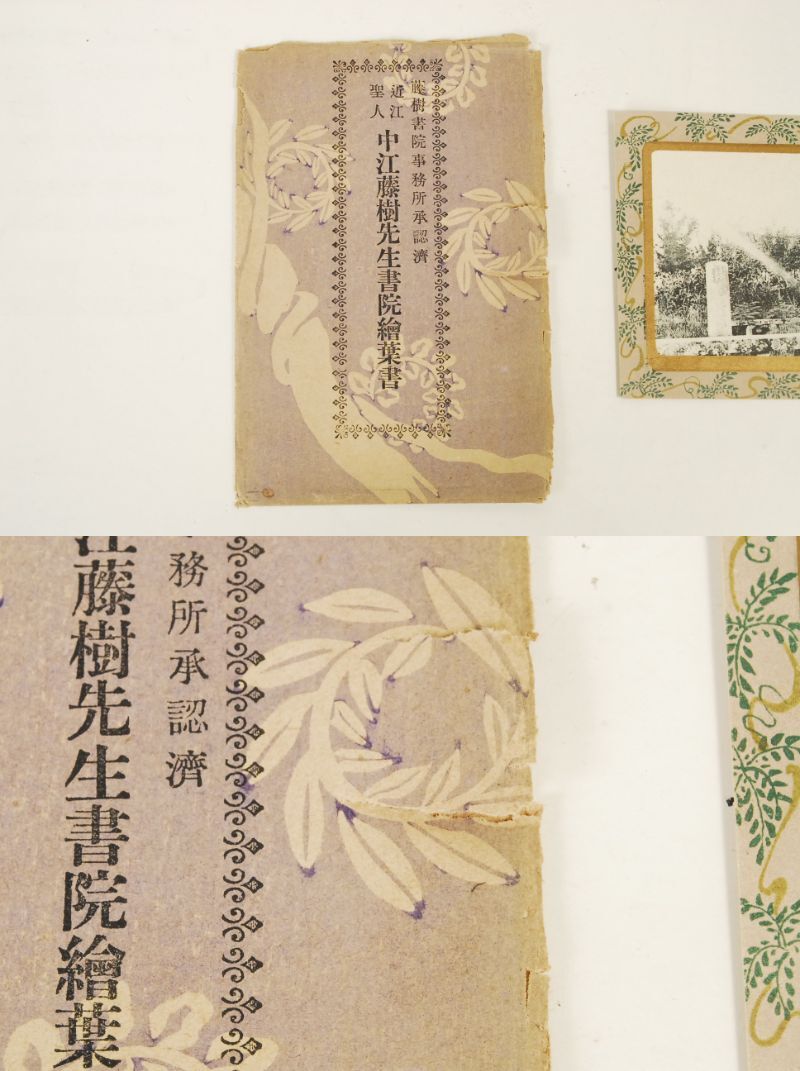 藤樹書院事務所承認濟
近江
聖人
中江藤樹先生書院繪葉書
務所承認濟
江藤樹先生書院繪葉